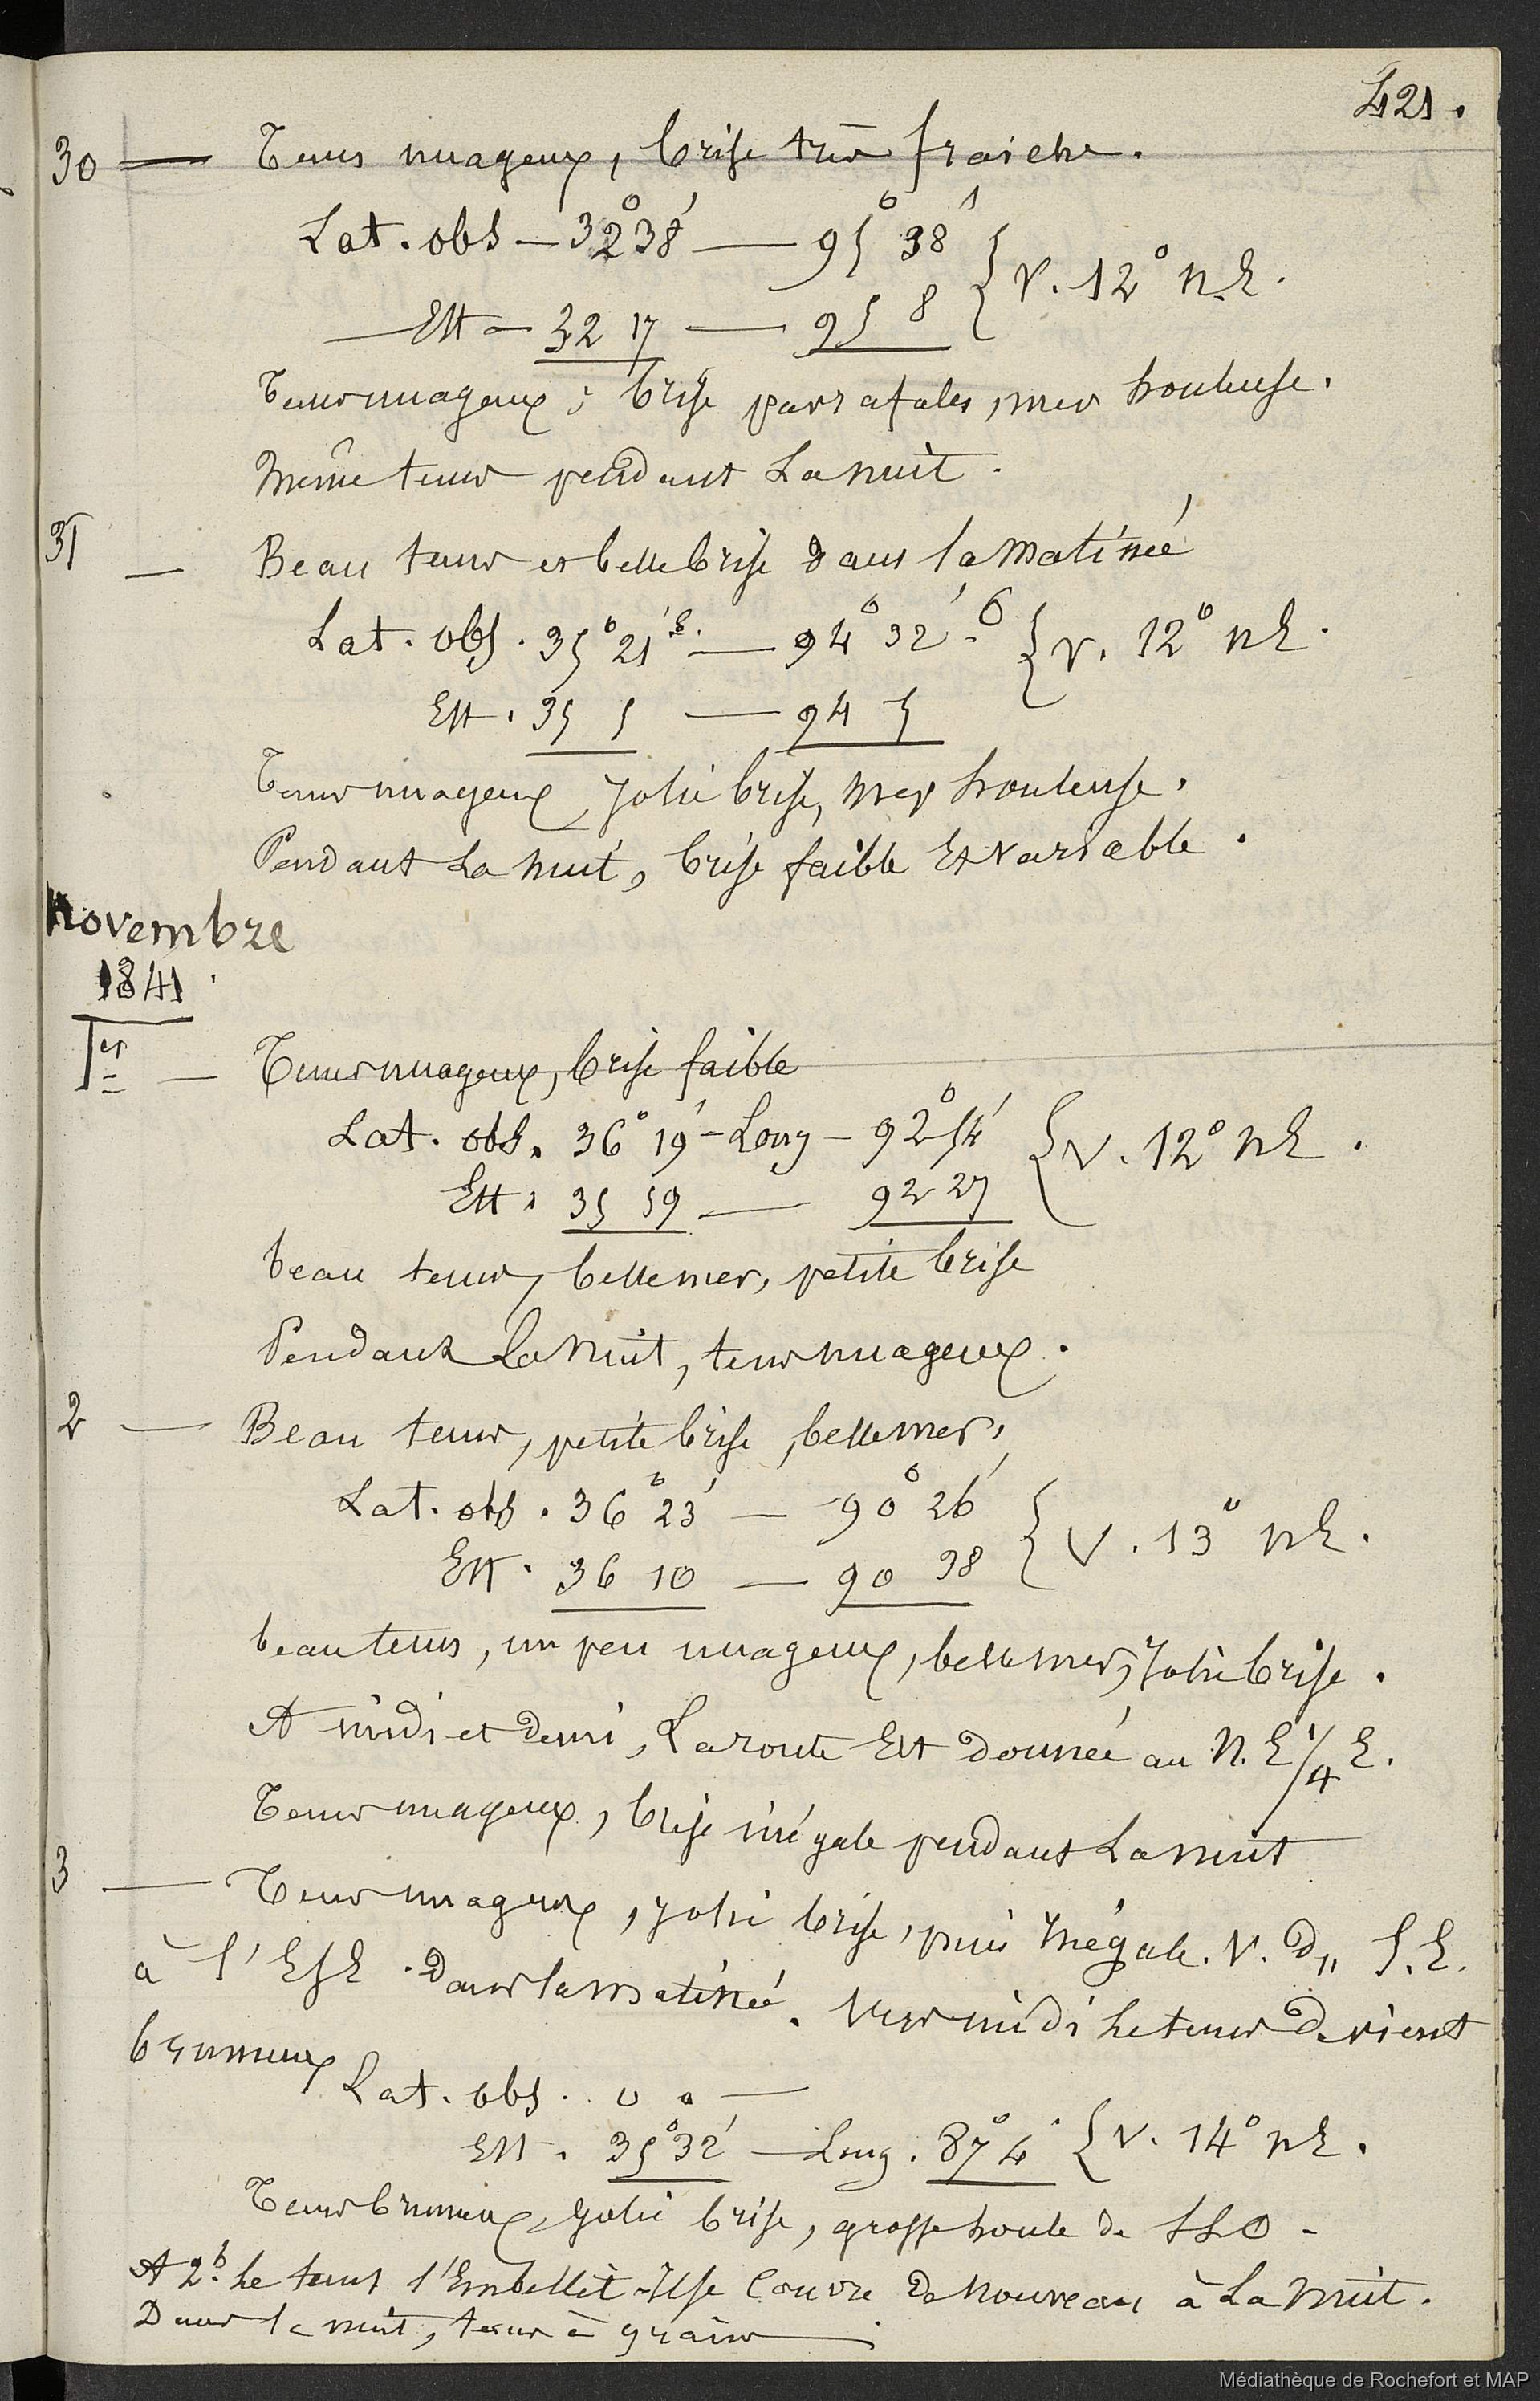 421.
30 — Tems nuageux, brise très fraiche.
Lat. obs — 32° 38' — 95° 38' { V. 12° N.E.
— Est — 32 17 — 95 8
Tems nuageux ; brise par rafales, mer houleuse.
Même tems pendant La nuit.
31 — Beau tems et belle brise dans la matinée
Lat. obs. 35° 21' S. — 94° 32' - 6 { V. 12° NE.
Est. 35 5 — 94 5
Tems nuageux, Jolie brise, mer houleuse.
Pendant La nuit, brise faible Et variable.
Novembre
1841.
1er — Tems nuageux, brise faible
Lat. obs. 36° 19' - Long - 92° 54' { V. 12° NE.
Est. 35 59 — 92 27
beau tems, belle mer, petite brise
Pendant La Nuit, tems nuageux.
2 — Beau tems, petite brise, belle mer,
Lat. obs. 36° 23' — 90° 26' { V. 13° NE.
Est. 36 10 — 90 38
beau tems, un peu nuageux, belle mer, Jolie brise.
A midi et demi, La route Est donnée au N. E 1/4 E.
Tems nuageux, brise inégale pendant La nuit
3 — Tems nuageux, jolie brise, puis Inégale. V. d,, S.E.
à l'ESE. Dans la matinée. Vers midi Le tems devient
brumeux
Lat. obs. 0 0 —
Est. 35° 32' — Long. 87° 4' { V. 14° NE.
Tems brumeux, Jolie brise, grosse houle de SSO -
A 2h. Le tems s'Embellit - Il se Couvre de Nouveau à La Nuit.
Dans la nuit, tems à grains —
Médiathèque de Rochefort et MAP